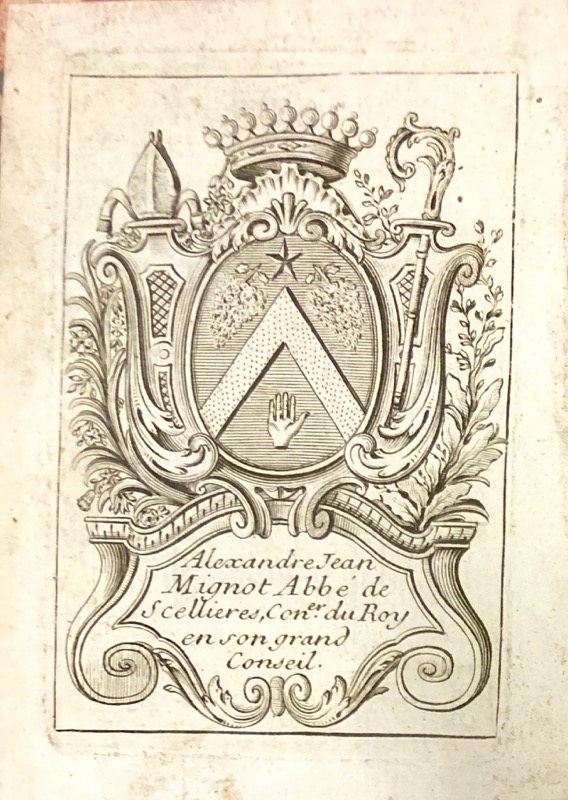 Alexandre Jean
Mignot Abbé de
Scellieres, Con.er du Roy
en son grand
Conseil.